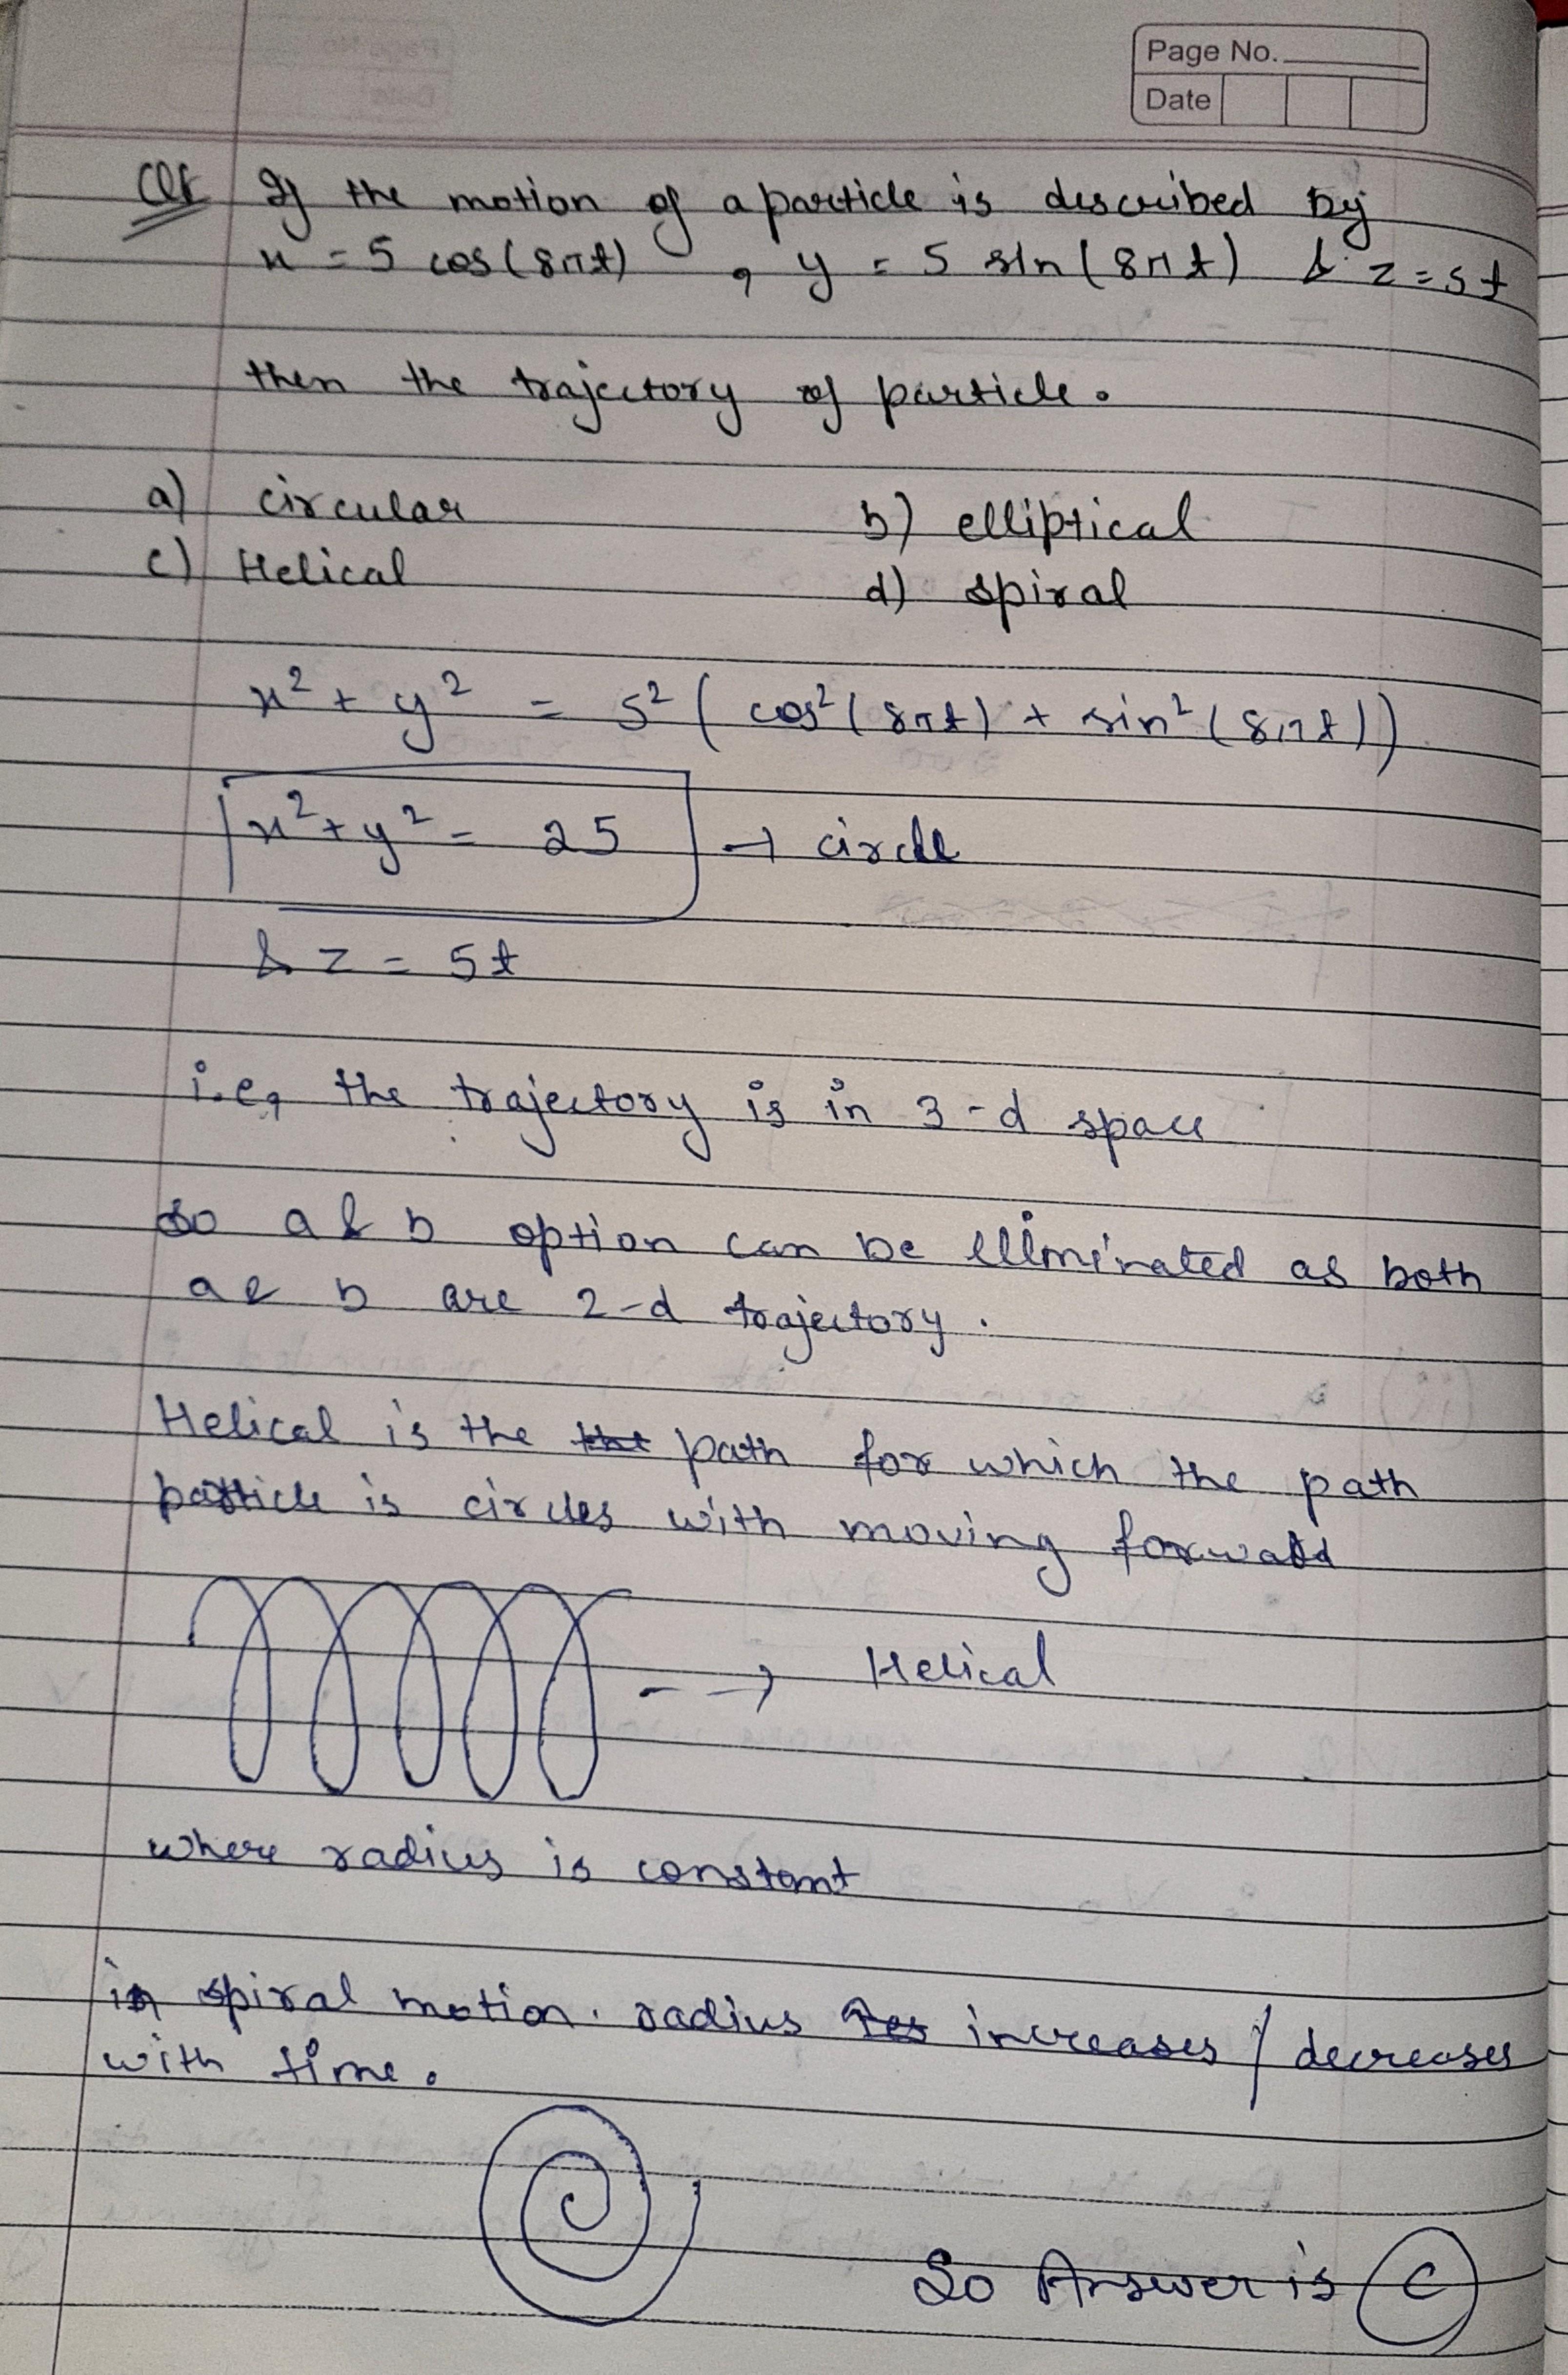 Page No.
Date
Qu If the motion of a particle is described by
x = 5 cos(8πt) , y = 5 sin(8πt) & z = 5t
then the trajectory of particle.
a) circular b) elliptical
c) Helical d) spiral
x² + y² = 5² ( cos²(8πt) + sin²(8πt))
x² + y² = 25 → circle
& z = 5t
i.e, the trajectory is in 3-d space
so a & b option can be elliminated as both
a & b are 2-d trajectory.
Helical is the the path for which the path
particle is circles with moving forward
--→ Helical
where radius is constant
in spiral motion. radius increases / decreases
with time.
So Answer is C